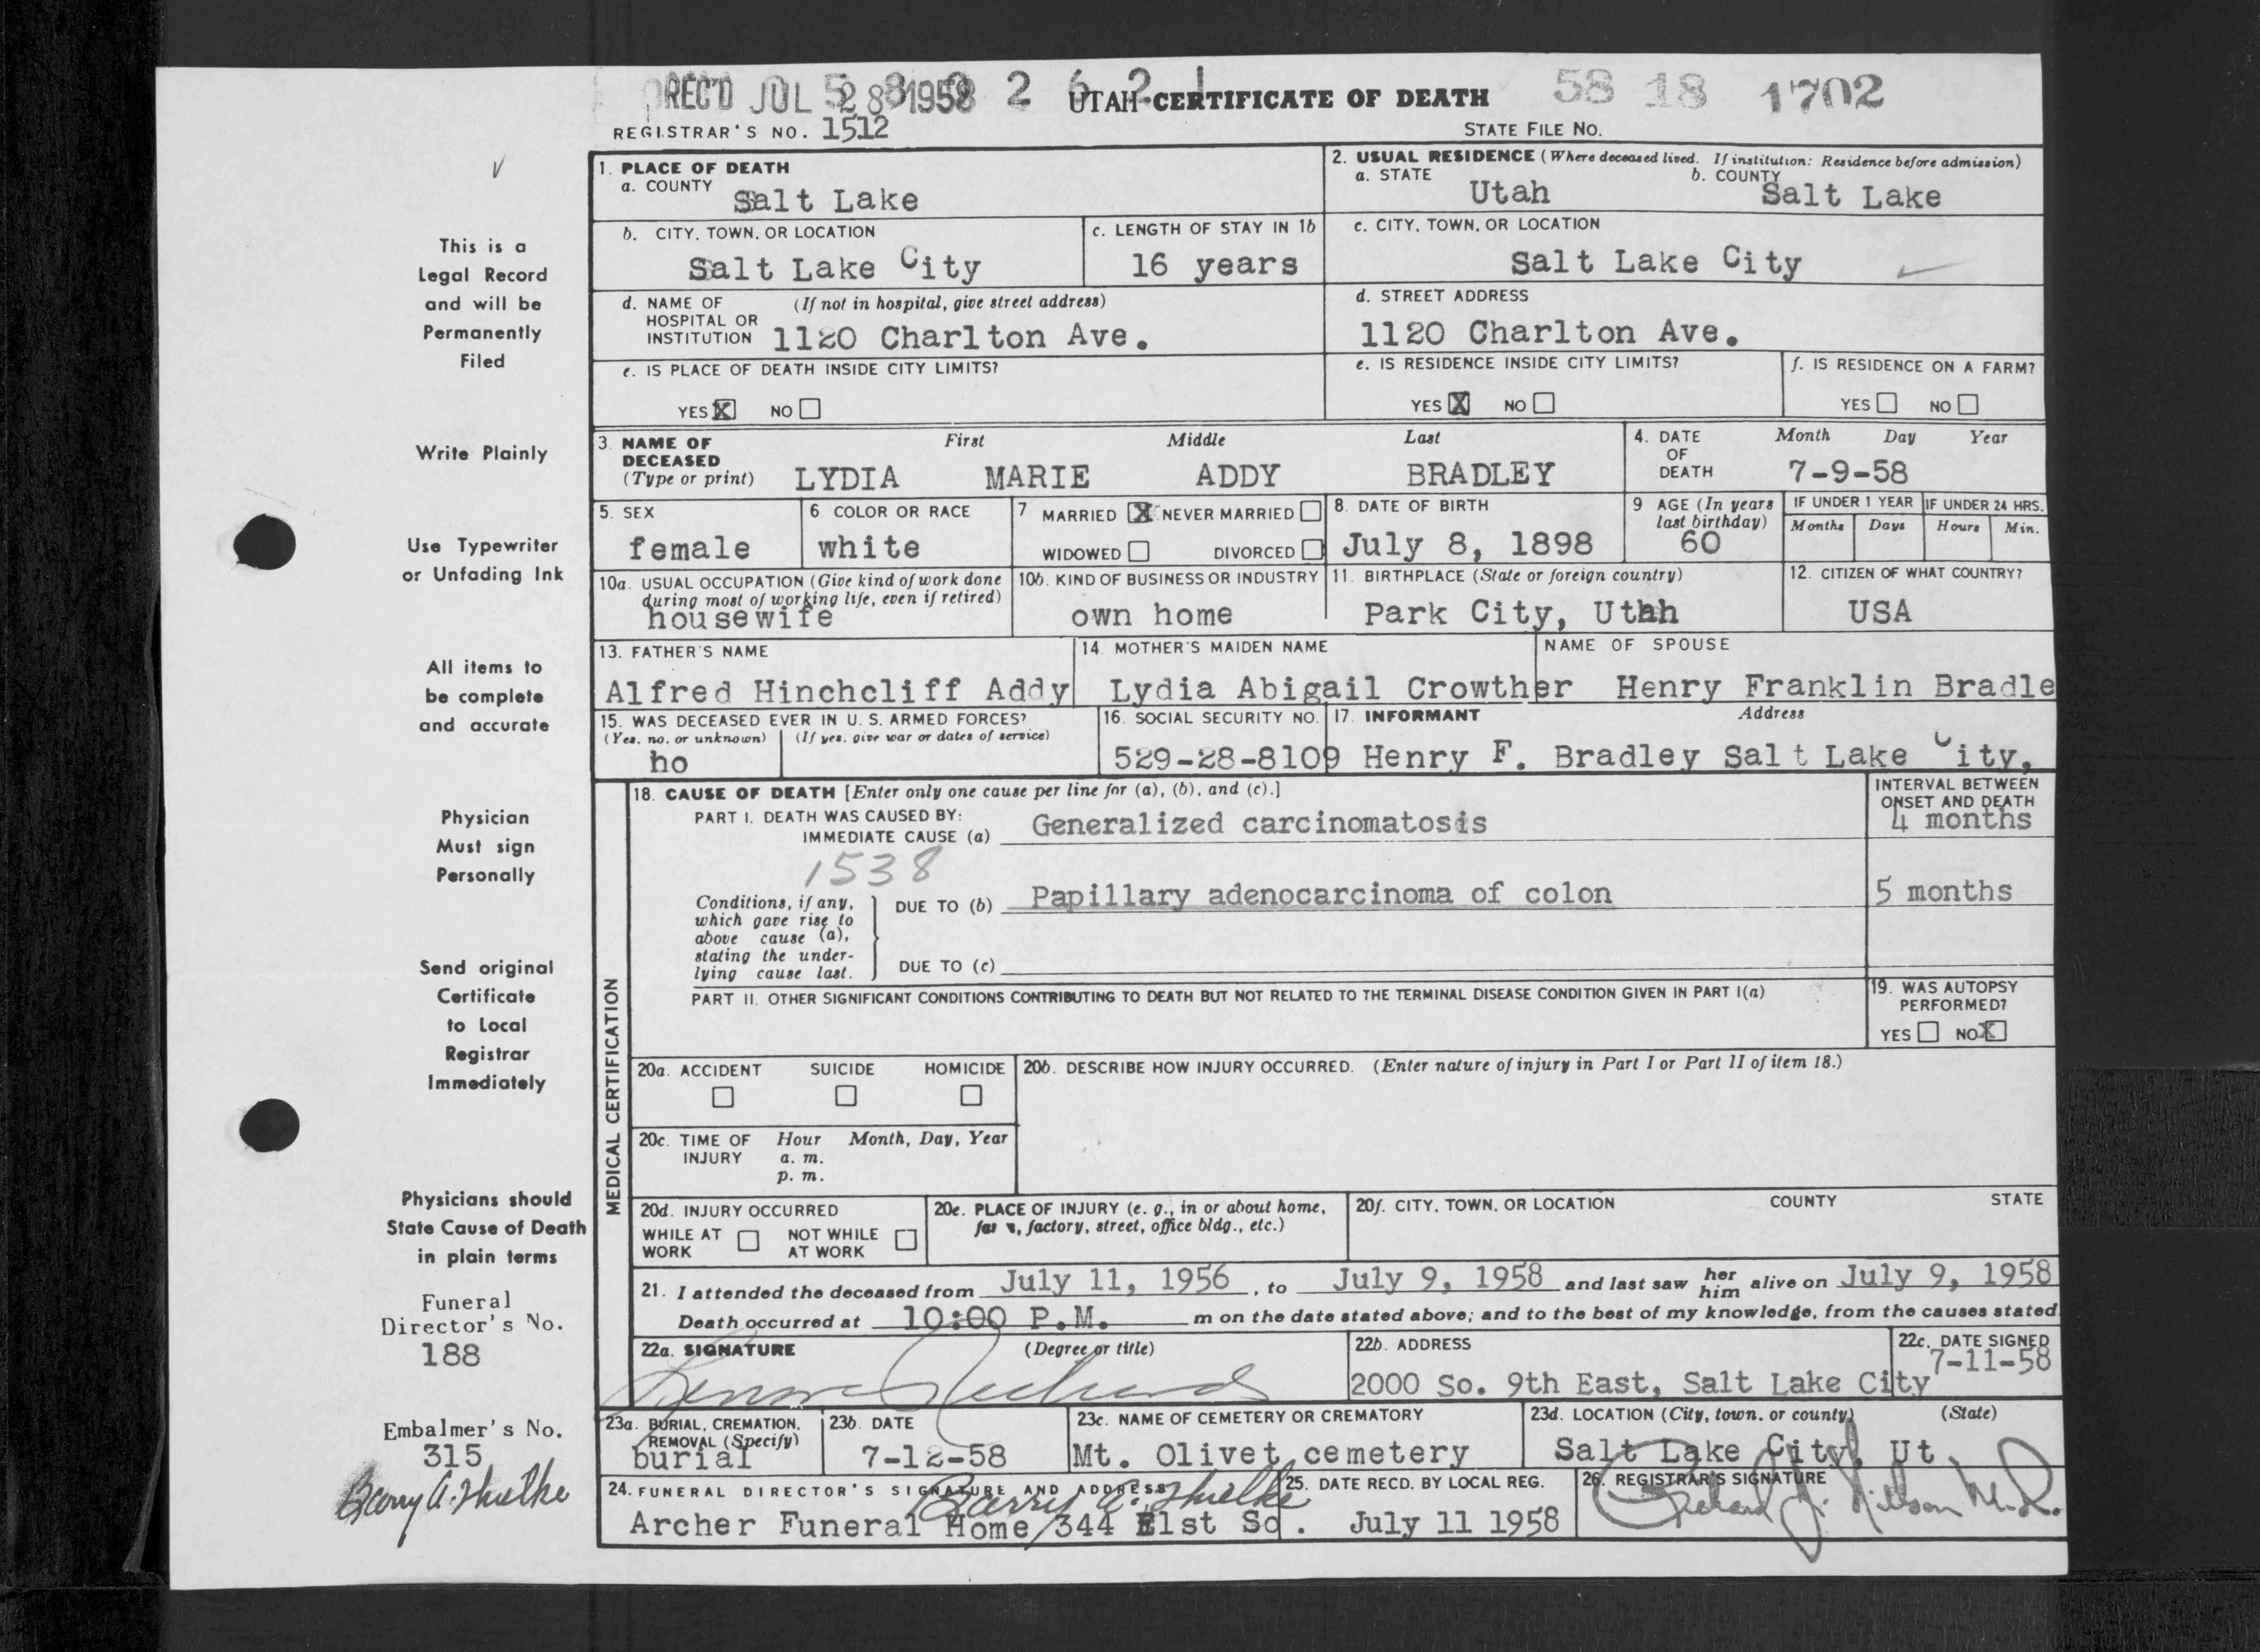 REC'D JUL 28 1958 UTAH CERTIFICATE OF DEATH 58 18 1702
REGISTRAR'S NO. 1512 STATE FILE NO.
1. PLACE OF DEATH
a. COUNTY Salt Lake
2. USUAL RESIDENCE (Where deceased lived. If institution: Residence before admission)
a. STATE Utah b. COUNTY Salt Lake
b. CITY, TOWN, OR LOCATION Salt Lake City
c. LENGTH OF STAY IN 1b 16 years
c. CITY, TOWN, OR LOCATION Salt Lake City
d. NAME OF HOSPITAL OR INSTITUTION (If not in hospital, give street address) 1120 Charlton Ave.
d. STREET ADDRESS 1120 Charlton Ave.
e. IS PLACE OF DEATH INSIDE CITY LIMITS?
YES X NO
e. IS RESIDENCE INSIDE CITY LIMITS?
YES X NO
f. IS RESIDENCE ON A FARM?
YES NO
3. NAME OF DECEASED (Type or print) First Middle Last
LYDIA MARIE ADDY BRADLEY
4. DATE OF DEATH Month Day Year
7-9-58
5. SEX female
6. COLOR OR RACE white
7 MARRIED X NEVER MARRIED
WIDOWED DIVORCED
8. DATE OF BIRTH July 8, 1898
9 AGE (In years last birthday) 60
IF UNDER 1 YEAR Months Days
IF UNDER 24 HRS. Hours Min.
10a. USUAL OCCUPATION (Give kind of work done during most of working life, even if retired) housewife
10b. KIND OF BUSINESS OR INDUSTRY own home
11. BIRTHPLACE (State or foreign country) Park City, Utah
12. CITIZEN OF WHAT COUNTRY? USA
13. FATHER'S NAME Alfred Hinchcliff Addy
14. MOTHER'S MAIDEN NAME Lydia Abigail Crowther
NAME OF SPOUSE Henry Franklin Bradle
15. WAS DECEASED EVER IN U. S. ARMED FORCES?
(Yes, no, or unknown) (If yes, give war or dates of service)
ho
16. SOCIAL SECURITY NO. 529-28-8109
17. INFORMANT Address
Henry F. Bradley Salt Lake City,
MEDICAL CERTIFICATION
18. CAUSE OF DEATH [Enter only one cause per line for (a), (b), and (c).]
INTERVAL BETWEEN ONSET AND DEATH
PART I. DEATH WAS CAUSED BY:
IMMEDIATE CAUSE (a) Generalized carcinomatosis 4 months
1538
Conditions, if any, which gave rise to above cause (a), stating the underlying cause last.
DUE TO (b) Papillary adenocarcinoma of colon 5 months
DUE TO (c)
PART II. OTHER SIGNIFICANT CONDITIONS CONTRIBUTING TO DEATH BUT NOT RELATED TO THE TERMINAL DISEASE CONDITION GIVEN IN PART I(a)
19. WAS AUTOPSY PERFORMED?
YES NO X
20a. ACCIDENT SUICIDE HOMICIDE
20b. DESCRIBE HOW INJURY OCCURRED. (Enter nature of injury in Part I or Part II of item 18.)
20c. TIME OF INJURY Hour Month, Day, Year
a. m.
p. m.
20d. INJURY OCCURRED
WHILE AT WORK NOT WHILE AT WORK
20e. PLACE OF INJURY (e. g., in or about home, farm, factory, street, office bldg., etc.)
20f. CITY, TOWN, OR LOCATION COUNTY STATE
21. I attended the deceased from July 11, 1956, to July 9, 1958 and last saw her him alive on July 9, 1958
Death occurred at 10:00 P.M. m on the date stated above; and to the best of my knowledge, from the causes stated
22a. SIGNATURE (Degree or title)
22b. ADDRESS 2000 So. 9th East, Salt Lake City
22c. DATE SIGNED 7-11-58
23a. BURIAL, CREMATION, REMOVAL (Specify) burial
23b. DATE 7-12-58
23c. NAME OF CEMETERY OR CREMATORY Mt. Olivet cemetery
23d. LOCATION (City, town, or county) (State)
Salt Lake City, Ut
24. FUNERAL DIRECTOR'S SIGNATURE AND ADDRESS
Archer Funeral Home/344 E1st So.
25. DATE RECD. BY LOCAL REG. July 11 1958
26. REGISTRAR'S SIGNATURE
This is a
Legal Record
and will be
Permanently
Filed
Write Plainly
Use Typewriter
or Unfading Ink
All items to
be complete
and accurate
Physician
Must sign
Personally
Send original
Certificate
to Local
Registrar
Immediately
Physicians should
State Cause of Death
in plain terms
Funeral
Director's No.
188
Embalmer's No.
315